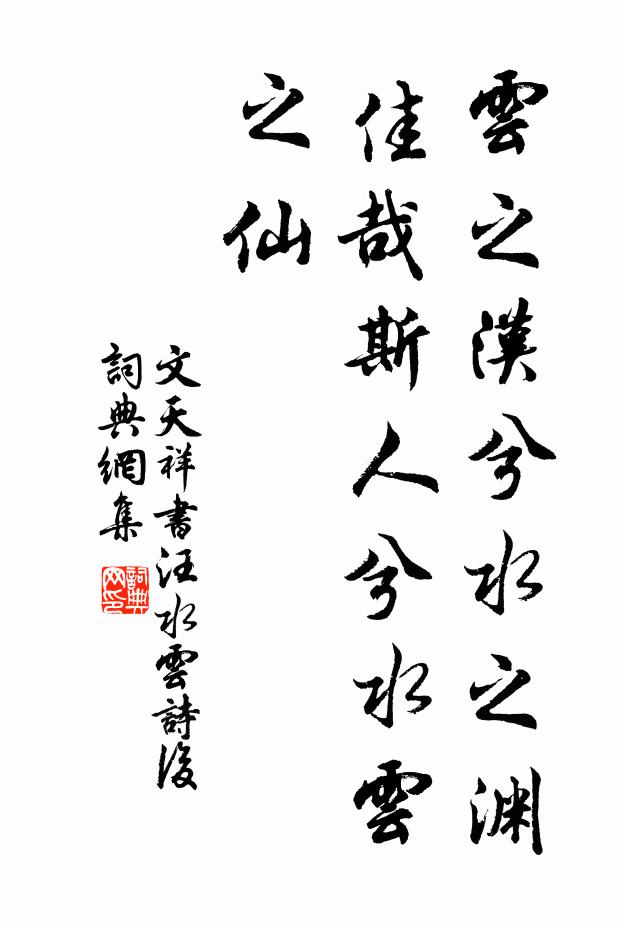 雲之漢兮水之渊
佳哉斯人兮水雲
之仙
文天祥書汪水雲詩後
詞典網集
詞典网印